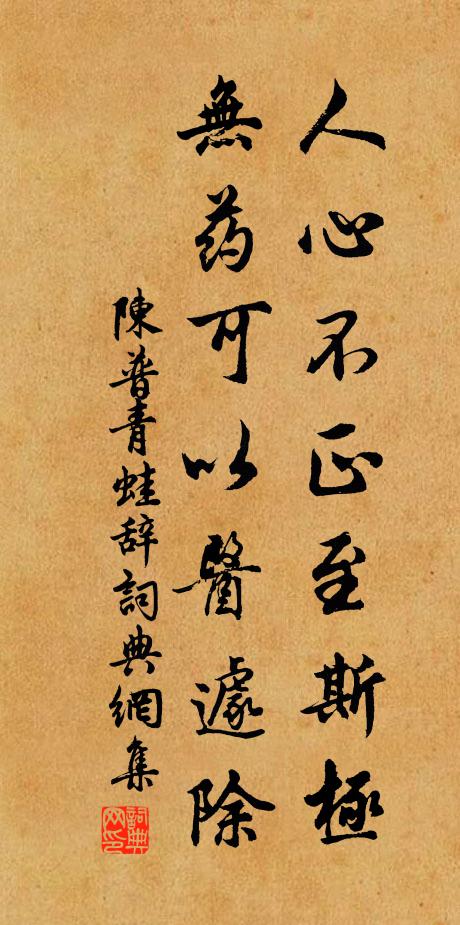 人心不正至斯極
無药可以醫遽除
陳普青蛙辞詞典網集
詞典网印